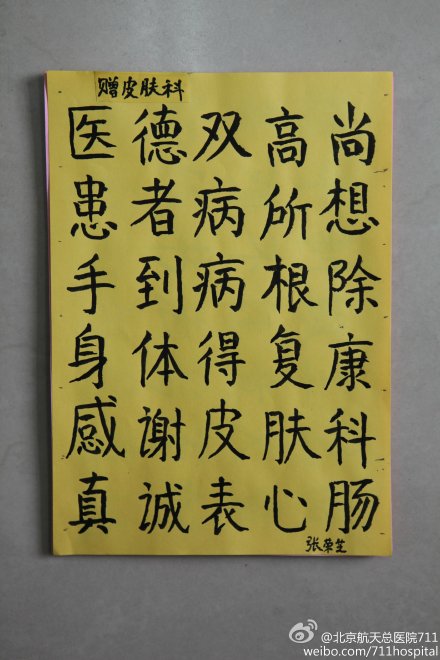 赠皮肤科
医德双高尚
患者病所想
手到病根除
身体得复康
感谢皮肤科
真诚表心肠
张荣芝
@北京航天总医院711
weibo.com/711hospital